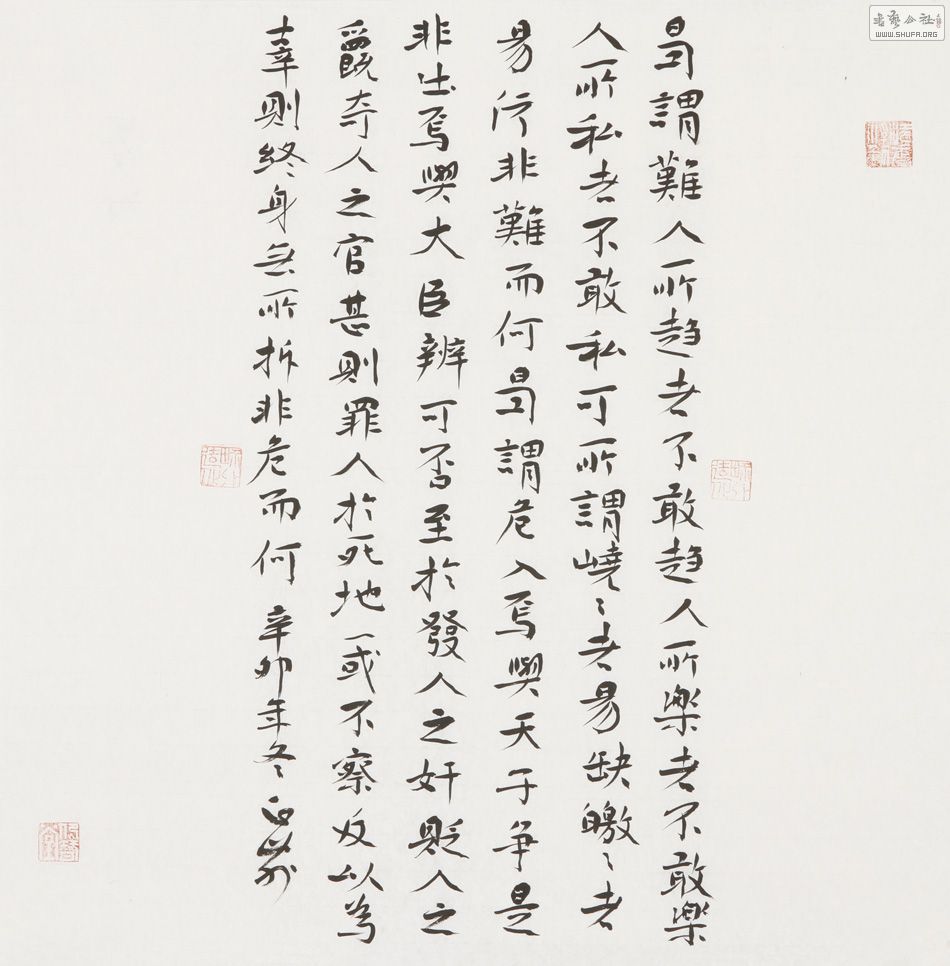 書藝公社
WWW.SHUFA.ORG
曷謂難人所趨者不敢趨人所樂者不敢樂
人所私者不敢私可所謂嶢〻者易缺皦〻者
易污非難而何曷謂危入焉與天子争是
非出焉與大臣辨可否至於發人之奸貶人之
爵奪人之官甚則罪人於死地一或不察反以為
辜則終身無所拆非危而何 辛卯年冬